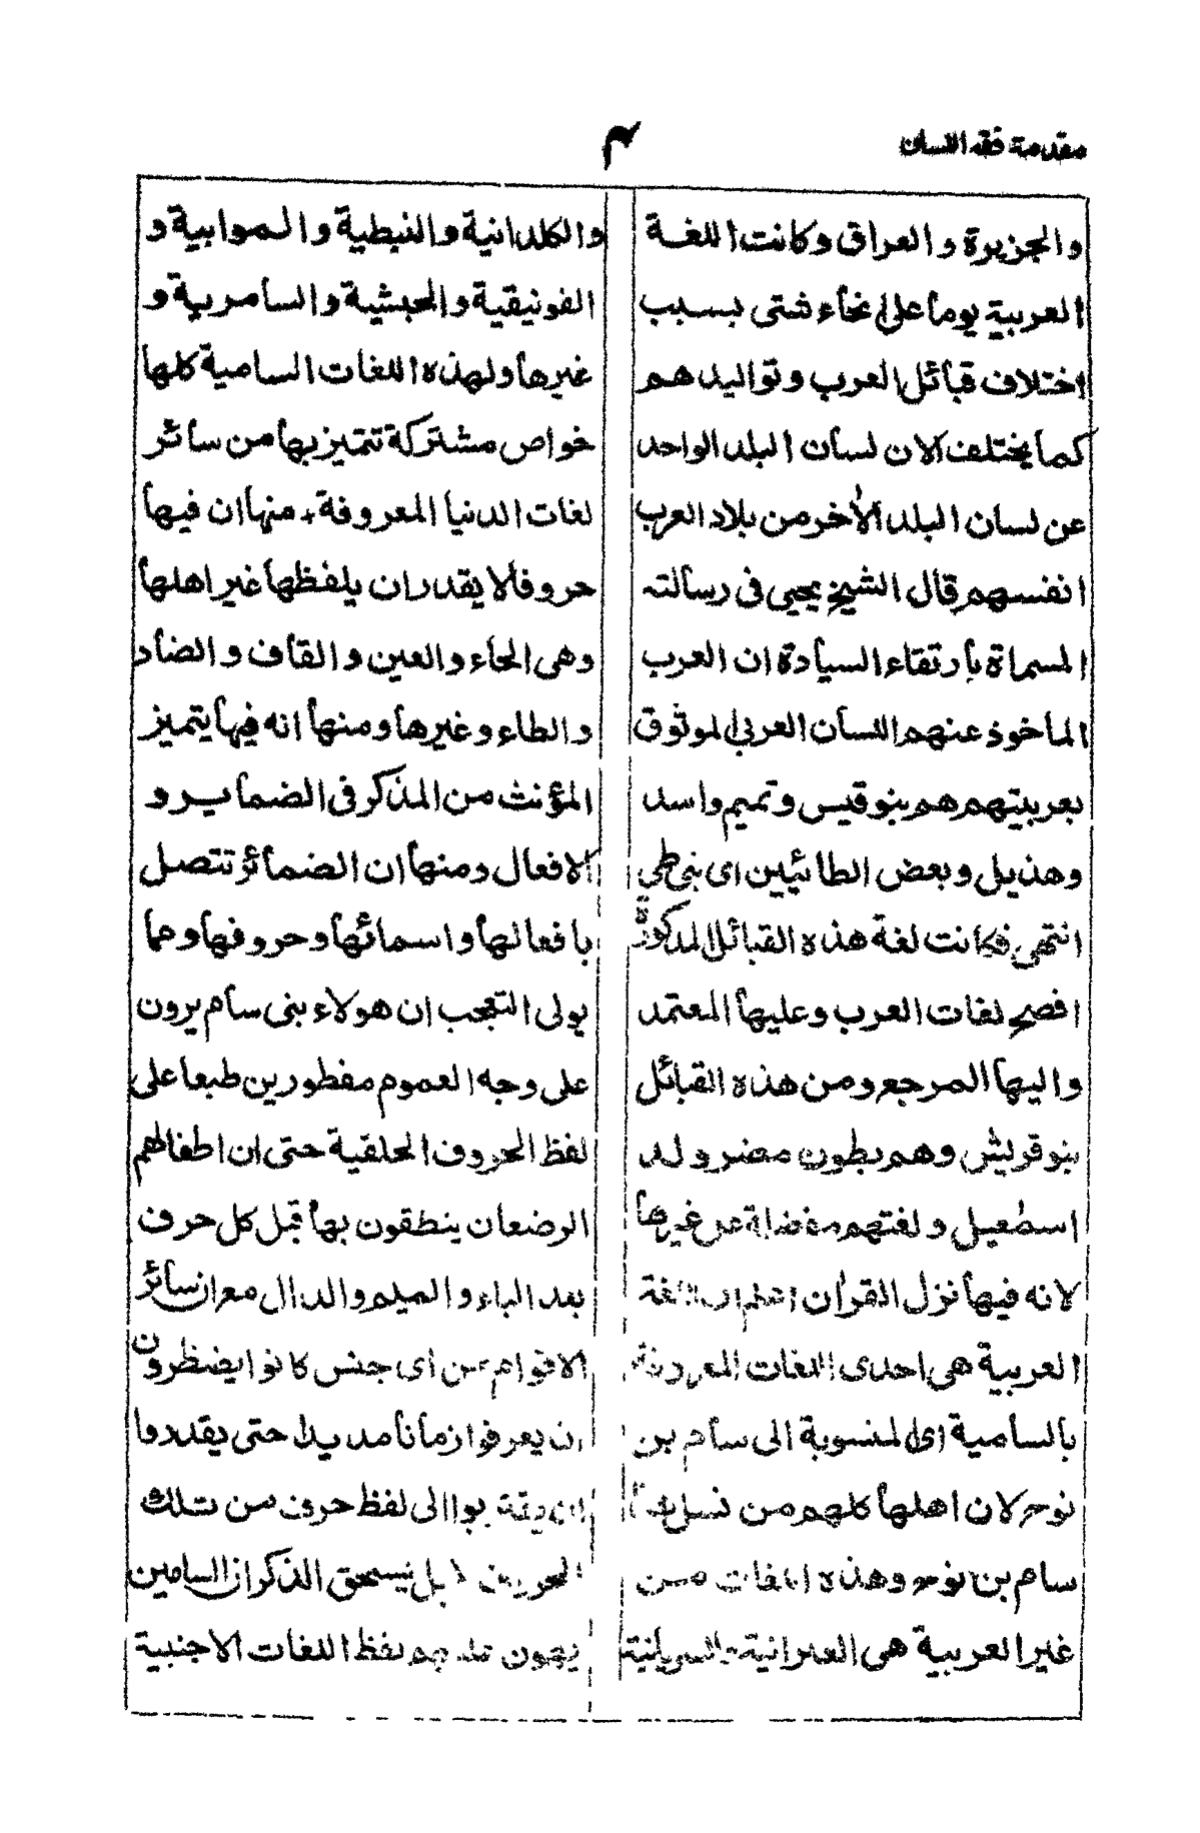 مقدمة فقه اللسان
٣
والجزيرة والعراق وكانت اللغة
العربية يوما على نحاء شتى بسبب
اختلاف قبائل العرب وتواليدهم
كما يختلف الان لسان البلد الواحد
عن لسان البلد الأخر من بلاد العرب
انفسهم قال الشيخ يحيى فى رسالته
المسماة بارتقاء السيادة ان العرب
الماخوذ عنهم اللسان العربى الموثوق
بعربيتهم هم بنو قيس وتميم واسد
وهذيل وبعض الطائيين اى بنى طى
انتهى فكانت لغة هذه القبائل المذكورة
افصح لغات العرب وعليها المعتمد
واليها المرجع ومن هذه القبائل
بنو قريش وهم بطون مضر ولد
اسمعيل ولغتهم مفضلة عن غيرها
لانه فيها نزل القران اللغة
العربية هى احدى اللغات المعروفة
بالسامية اى المنسوبة الى سام بن
نوح لان اهلها كلهم من نسل
سام بن نوح وهذه اللغات من
غير العربية هى العبرانية والسريانية
والكلدانية والنبطية والموابية و
الفونيقية والحبشية والسامرية و
غيرها ولهذه اللغات السامية كلها
خواص مشتركة تتميز بها من سائر
لغات الدنيا المعروفة منها ان فيها
حروفا لا يقدر ان يلفظها غير اهلها
وهى الحاء والعين والقاف والضاد
والطاء وغيرها ومنها انه فيها يتميز
المؤنث من المذكر فى الضماير و
الافعال ومنها ان الضمائر تتصل
بافعالها واسمائها وحروفها ومما
يولى التعجب ان هولاء بنى سام يرون
على وجه العموم مفطورين طبعا على
لفظ الحروف الحلقية حتى ان اطفالهم
الرضعان ينطقون بها قبل كل حرف
بعد الباء والميم والدال مع ان سائر
الاقوام من اى جنس كانوا يضظرون
ان يعرفوا زمانا مديدا حتى يقدروا
ان يقتربوا الى لفظ حرف من تلك
الحروف بل يستحق الذكر ان السامين
يهون عليهم لفظ اللغات الاجنبية